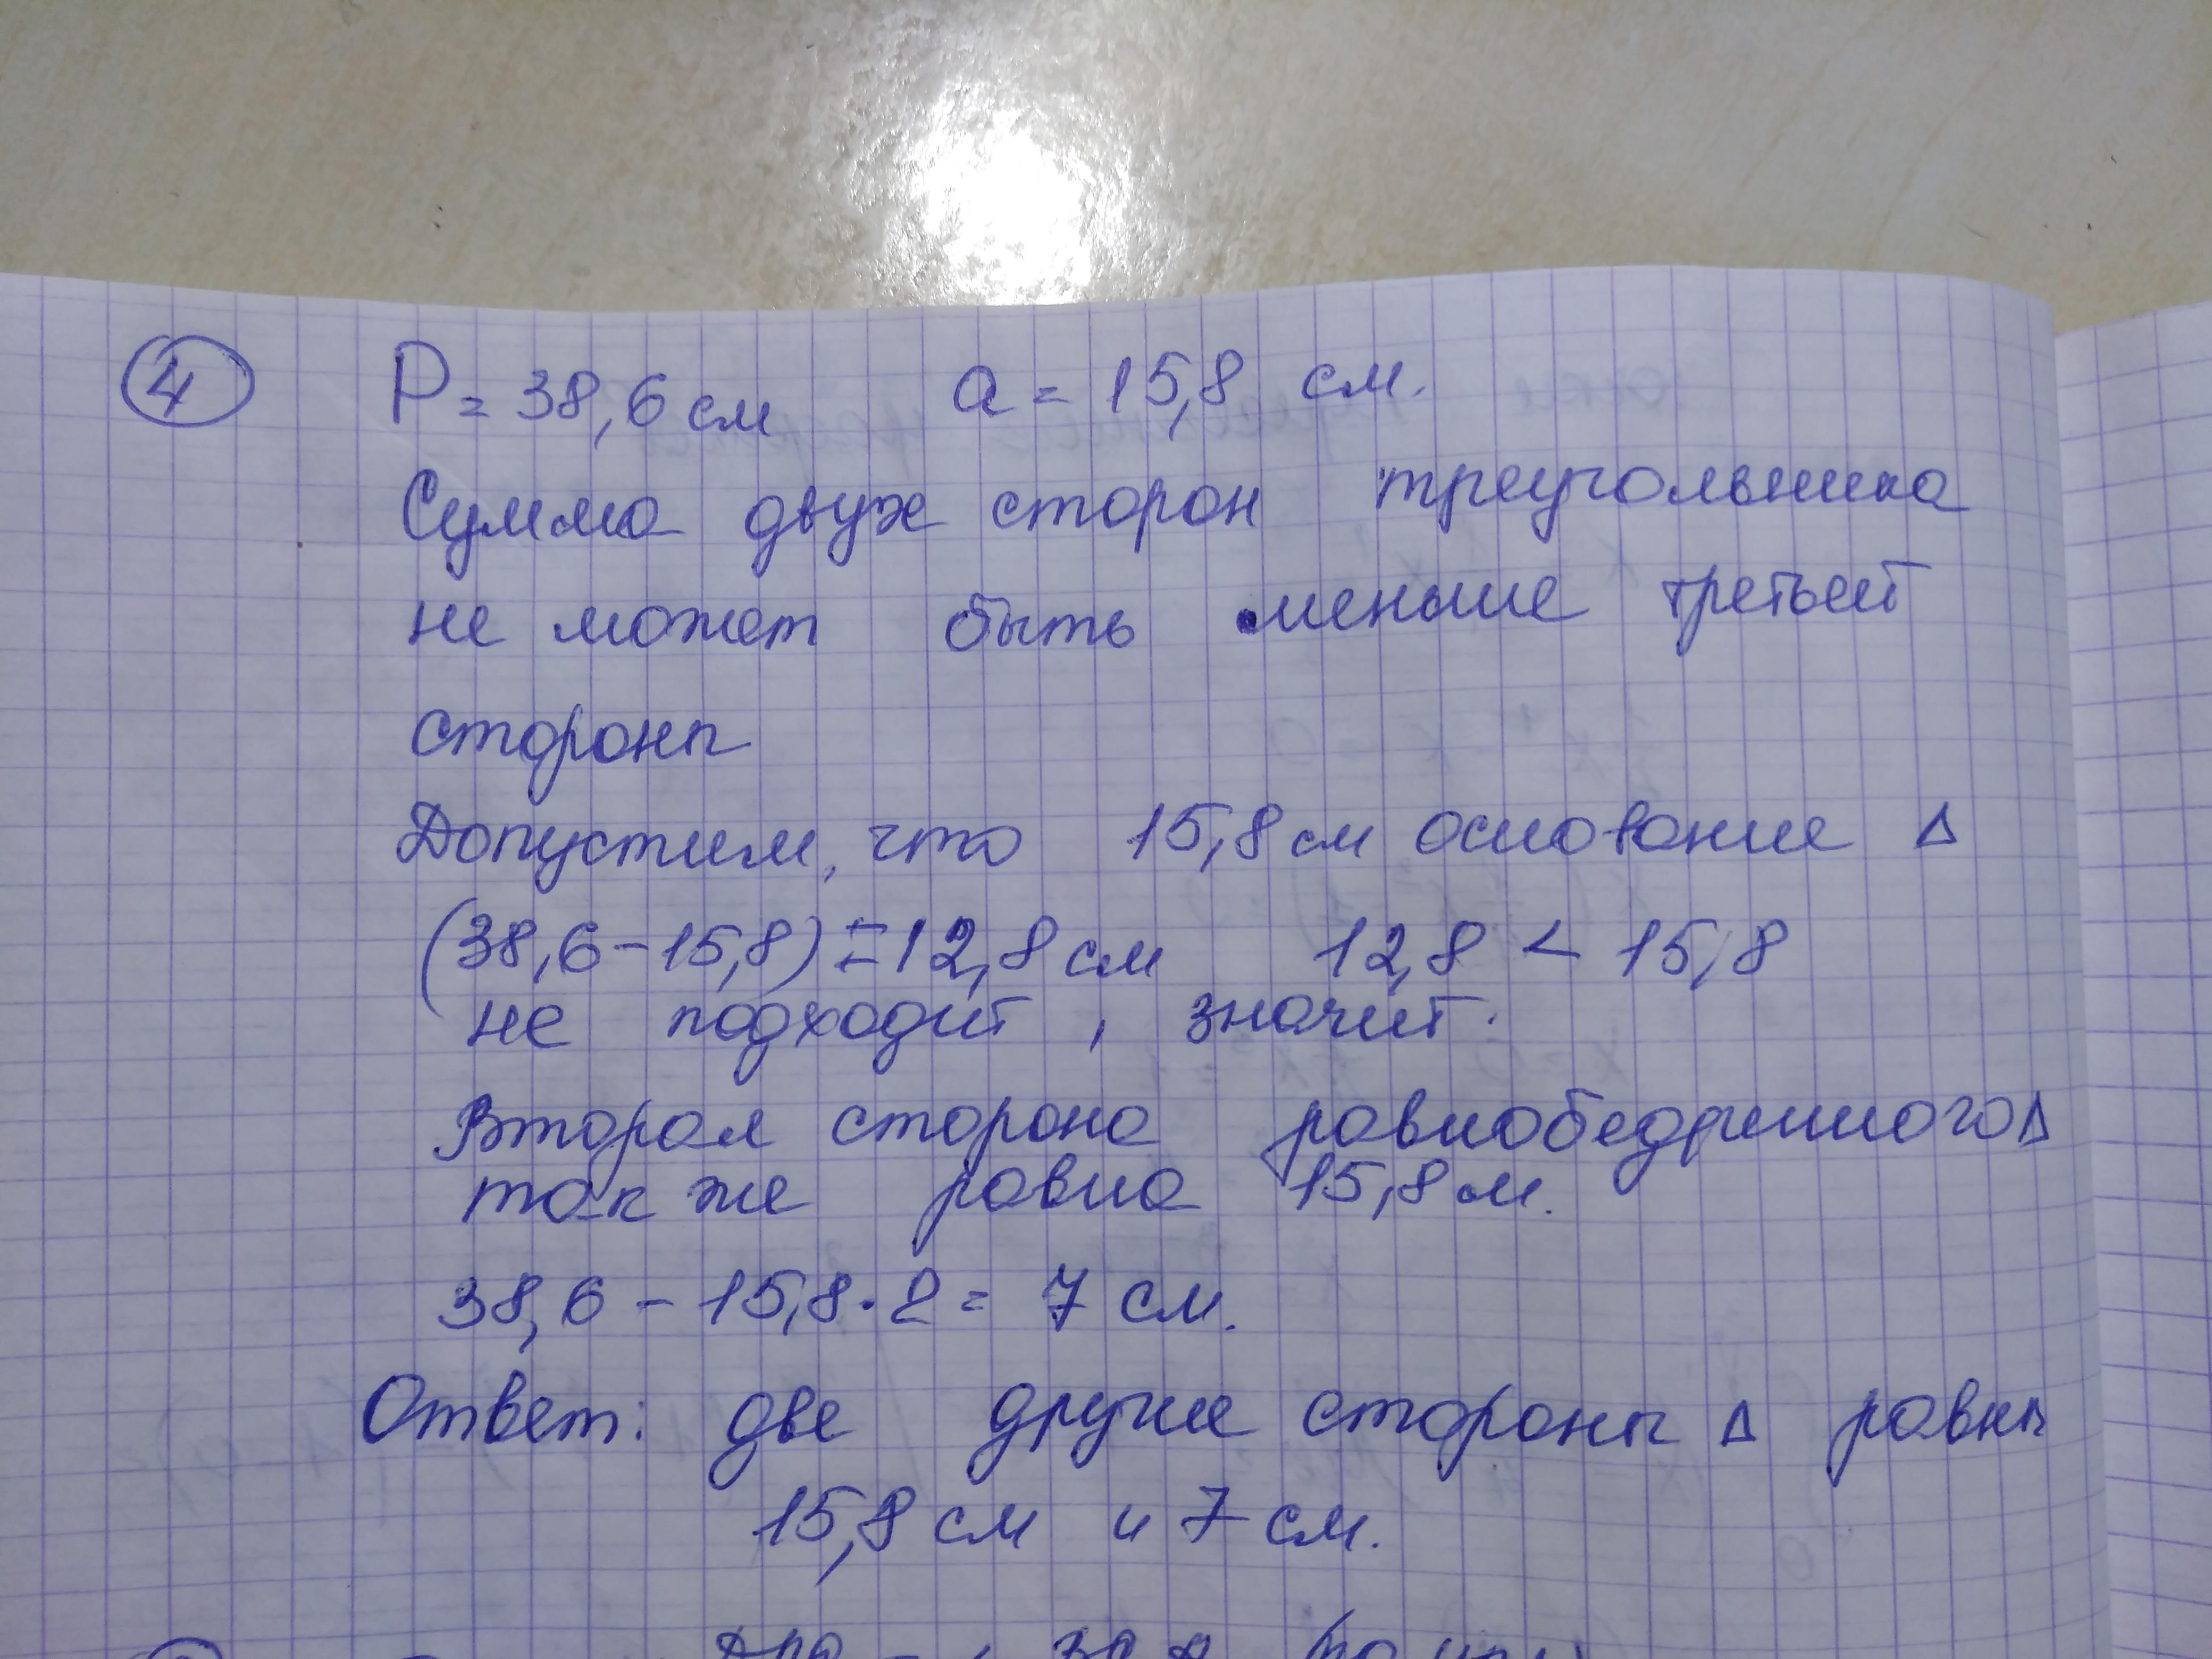 4 P = 38,6 см a = 15,8 см.
Сумма двух сторон треугольника
не может быть меньше третьей
стороны
Допустим, что 15,8 см основание Δ
(38,6 - 15,8) = 12,8 см 12,8 < 15,8
не подходит, значит.
Вторая сторона равнобедренного Δ
так же равна 15,8 м.
38,6 - 15,8 · 2 = 7 см.
Ответ: две другие стороны Δ равны
15,8 см и 7 см.